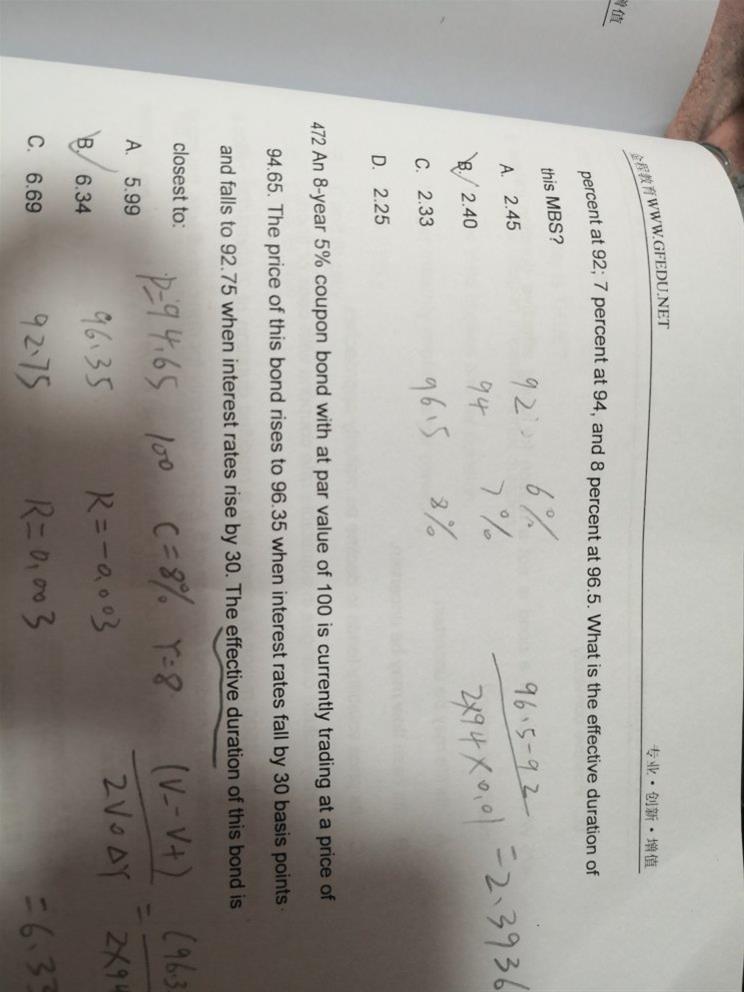 增值
金程教育 WWW.GFEDU.NET 专业·创新·增值
percent at 92; 7 percent at 94, and 8 percent at 96.5. What is the effective duration of
this MBS?
A. 2.45
B. 2.40
C. 2.33
D. 2.25
92 6%
94 7%
96.5 8%
96.5-92
2×94×0.01
=2.3936
472 An 8-year 5% coupon bond with at par value of 100 is currently trading at a price of
94.65. The price of this bond rises to 96.35 when interest rates fall by 30 basis points
and falls to 92.75 when interest rates rise by 30. The effective duration of this bond is
closest to:
A. 5.99
B. 6.34
C. 6.69
P=94.65 100 C=8% Y=8
96.35 R=-0.003
92.75 R=0.003
(V_-V+)
2V0ΔY
=
(96.3
2×94
=6.33